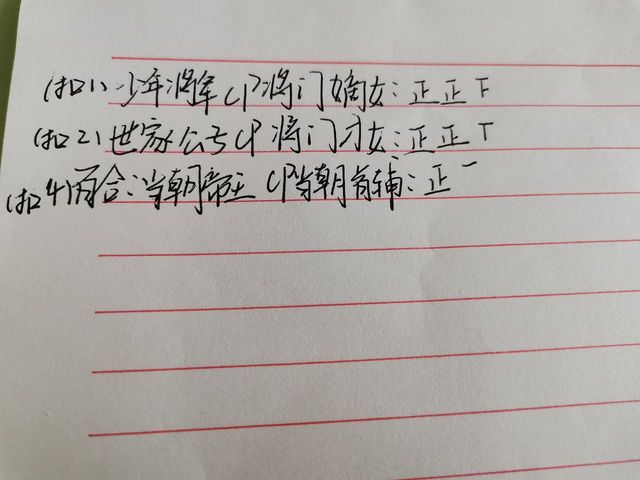 (扣1)少年将军CP将门嫡女:正正下
(扣2)世家公子CP将门才女:正正丅
(扣4)百合:当朝帝王CP当朝首辅:正一